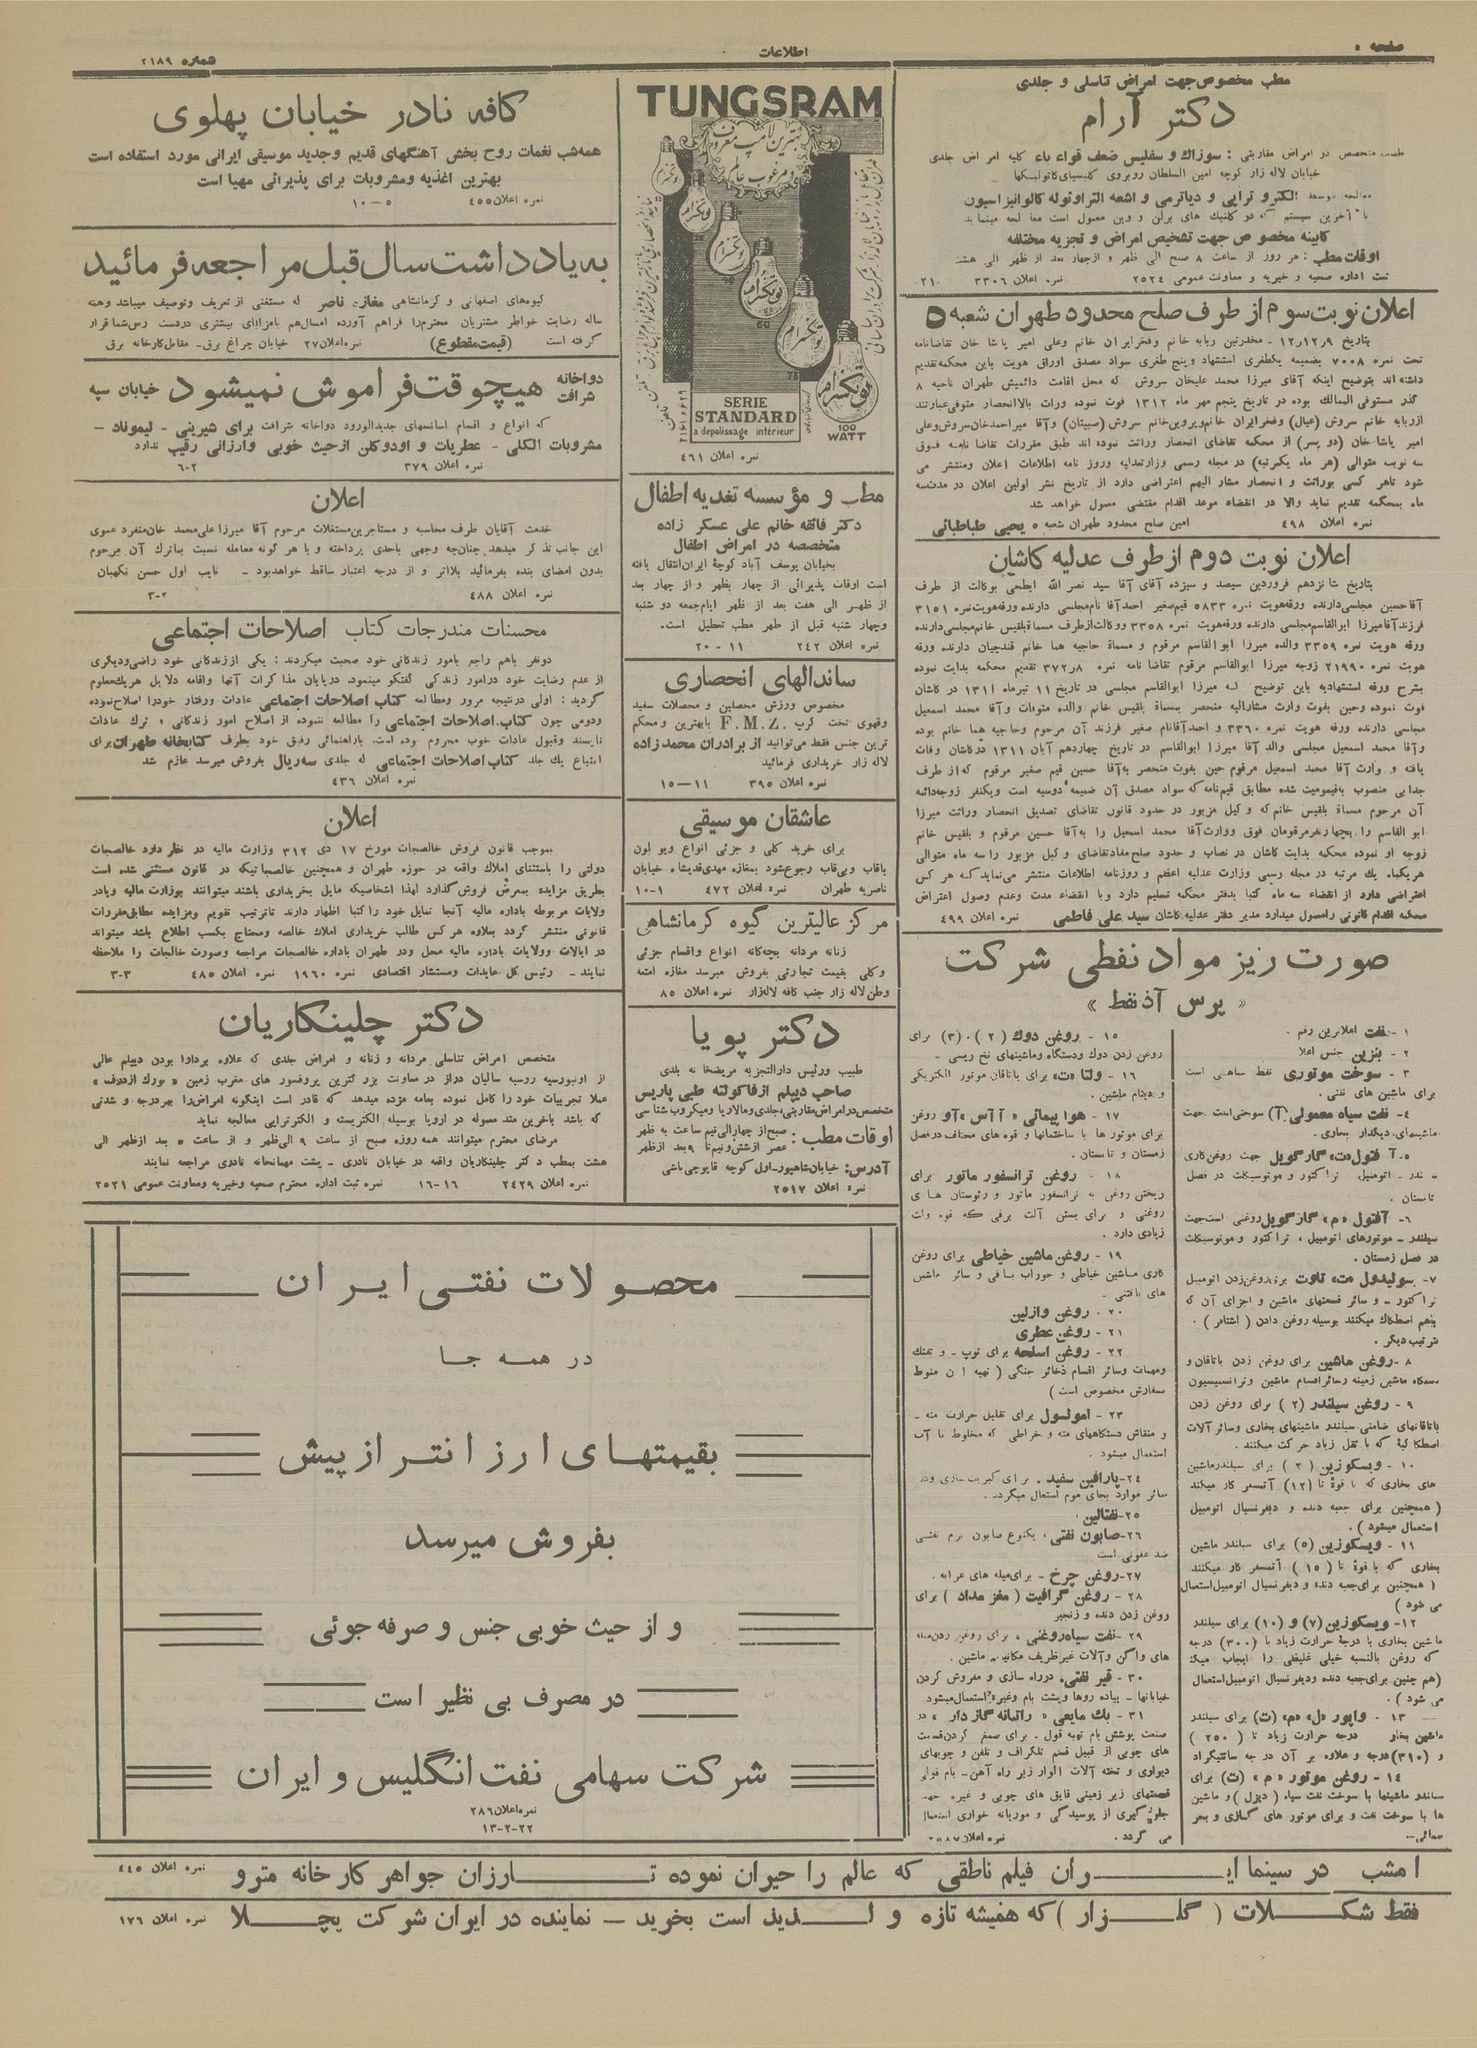 صفحه ۵
اطلاعات
شماره ۲۱۸۹
مطب مخصوص جهت امراض تناسلی و جلدی
دکتر آرام
طبیب متخصص در امراض مقاربتی : سوزاك و سفلیس ضعف قواء باء کلیه امراض جلدی
خیابان لاله زار کوچه امین السلطان روبروی کلیسیای کاتولیکها
معالجه بوسیله الکترو تراپی و دیاترمی و اشعه التراویوله کالوانیزاسیون
با آخرین سیستم که در کلنیك های برلن و وین معمول است معالجه مینماید
کابینه مخصوص جهت تشخیص امراض و تجزیه مختلفه
اوقات مطب : هر روز از ساعت ۸ صبح الی ظهر و از چهار بعد از ظهر الی هشت
ثبت اداره صحیه و خیریه و معاونت عمومی ۲۵۲۴ نمره اعلان ۳۳۰۶
اعلان نوبت سوم از طرف صلح محدود طهران شعبه ۵
بتاریخ ۱۲ر۱۲ر۹ - مخدرتین ربابه خانم وفخرایران خانم وعلی امیر پاشا خان تقاضانامه
تحت نمره ۷۰۰۸ بضمیمه یکطغری استشهاد وپنج طغری سواد مصدق اوراق هویت باین محکمه تقدیم
داشته اند بتوضیح اینکه آقای میرزا محمد علیخان سروش که محل اقامت دائمیش طهران ناحیه ۸
گذر مستوفی الممالك بوده در تاریخ پنجم مهر ماه ۱۳۱۲ فوت نموده وراث بالانحصار متوفی عبارتند
ازربابه خانم سروش (عیال) وفخرایران خانم وپروین خانم سروش (صبیتان) وآقا میراحمدخان سروش وعلی
امیر پاشا خان (دو پسر) از محکمه تقاضای انحصار وراثت نموده اند طبق مقررات تقاضا نامه فوق
سه نوبت متوالی (هر ماه یکمرتبه) در مجله رسمی وزارتعدلیه وروز نامه اطلاعات اعلان ومنتشر می
شود تاهر کسی بوراثت و انحصار مشار الیهم اعتراضی دارد از تاریخ نشر اولین اعلان در مدت سه
ماه بمحکمه تقدیم نماید والا در انقضاء موعد اقدام مقتضی معمول خواهد شد
نمره اعلان ۴۹۸ امین صلح محدود طهران شعبه ۵ یحیی طباطبائی
اعلان نوبت دوم از طرف عدلیه کاشان
بتاریخ شانزدهم فروردین سیصد و سیزده آقای آقا سید نصر الله ابطحی بوکالت از طرف
آقاحسین مجلسی دارنده ورقه هویت نمره ۵۸۳۳ قیم صغیر احمدآقا نام مجلسی دارنده ورقه هویت نمره ۳۱۵۱
فرزند آقامیرزا ابوالقاسم مجلسی دارنده ورقه هویت نمره ۳۳۵۸ ووکالت از طرف مسماة بلقیس خانم مجلسی دارنده
ورقه هویت نمره ۳۳۵۹ والده میرزا ابوالقاسم مرقوم و مسماة حاجیه هما خانم قندچیان دارنده ورقه
هویت نمره ۲۱۹۹۰ زوجه میرزا ابوالقاسم مرقوم تقاضا نامه نمره ۳۷۲ر۸ تقدیم محکمه بدایت نموده
بشرح ورقه استشهادیه باین توضیح که میرزا ابوالقاسم مجلسی در تاریخ ۱۱ تیر ماه ۱۳۱۱ در کاشان
فوت نموده وحین بفوت وارث مشارالیه منحصر بمسماة بلقیس خانم والده متوفات وآقا محمد اسمعیل
مجلسی دارنده ورقه هویت نمره ۳۳۶۰ و احمدآقانام صغیر فرزند آن مرحوم وحاجیه هما خانم بوده
وآقا محمد اسمعیل مجلسی والد آقا میرزا ابوالقاسم در تاریخ چهاردهم آبان ۱۳۱۱ درکاشان وفات
یافته و وارث آقا محمد اسمعیل مرقوم حین بفوت منحصر به آقا حسین قیم صغیر مرقوم که از طرف
جدایی منصوب به قیمومیت شده مطابق قیم نامه که سواد مصدق آن ضمیمه دوسیه است ویکنفر زوجه دائمه
آن مرحوم مسماة بلقیس خانم که و کیل مزبور در حدود قانون تقاضای تصدیق انحصار وراثت میرزا
ابو القاسم را بچهارنفر مرقومان فوق ووراث آقا محمد اسمعیل را به آقا حسین مرقوم و بلقیس خانم
زوجه او نموده محکمه بدایت کاشان در نصاب و حدود صلح مفاد تقاضای وکیل مزبور را سه ماه متوالی
هر یکماه یك مرتبه در مجله رسمی وزارت عدلیه اعظم و روزنامه اطلاعات منتشر می نماید که هر کس
اعتراضی دارد از انقضاء سه ماه کتبا بدفتر محکمه تسلیم دارد وبا انقضاء مدت وعدم وصول اعتراض
محکمه اقدام قانونی را معمول میدارد مدیر دفتر عدلیه کاشان سید علی فاطمی نمره اعلان ۴۹۹
صورت ریز مواد نفطی شرکت
« پرس آذ نفط »
۱ - نفت اعلاترین رقم .
۲ - بنزین جنس اعلا
۳ - سوخت موتوری نفط
برای ماشین های نفتی .
۴- نفت سیاه معمولی (آ) سوختی است جهت
ماشینهای دیگدار بخاری .
۵- آفتول «ت» گارگویل جهت روغن کاری
تراکتور و موتوسیکلت در فصل
تابستان .
۶- آفتول «م» گارگویل روغنی است جهت
سیلندر - موتورهای اتومبیل ، تراکتور و موتوسیکلت
در فصل زمستان .
۷- سولیدول «ت» تاوت برای روغن زدن اتومبیل
تراکتور - و سائر قسمتهای ماشین و اجزای آن که
باهم اصطکاك میکنند بوسیله روغن دادن ( اشتافر ) .
ترتیب دیگر .
۸ - روغن ماشین برای روغن زدن یاتاقان و
دستگاه ماشین زمینه وسائر اقسام ماشین وترانسمیسیون
۹ - روغن سیلندر (۲) برای روغن زدن
یاتاقانهای ضامنی سیلندر ماشینهای بخاری وسائر آلات
اصطکاکیه که با ثقل زیاد حرکت میکنند .
۱۰ - ویسکوزین (۳) برای سیلندر ماشین
های بخاری که با قوه تا (۱۲) آتمسفر کار میکند
( همچنین برای جعبه دنده و دیفرنسیال اتومبیل
استعمال میشود ) .
۱۱ - ویسکوزین (۵) برای سیلندر ماشین
بخاری که با قوه تا (۱۵) آتمسفر کار میکنند
( همچنین برای جعبه دنده و دیفرنسیال اتومبیل استعمال
می شود )
۱۲- ویسکوزین (۷) و (۱۰) برای سیلندر
ماشین بخاری با درجه حرارت زیاد با (۳۰۰) درجه
که روغن بالنسبه خیلی غلیظی را ایجاب میکند
(هم چنین برای جعبه دنده ودیفرنسیال اتومبیل استعمال
می شود ) .
۱۳ - واپور «ل» «م» (ت) برای سیلندر
ماشین بخار درجه حرارت زیاد تا (۲۵۰)
و (۳۱۰) درجه و علاوه بر آن درجه سانتیگراد
۱۴ - روغن موتور «م» (ت) برای
سیلندر ماشینها با سوخت نفت سیاه ( دیزل ) و ماشین
ها با سوخت نفت و برای موتور های گازی و بحر
پیمائی -
۱۵ - روغن دوك (۲) . (۳) برای
روغن زدن دوك ودستگاه وماشینهای نخ ریسی -
۱۶ - ولتا «ت» برای یاتاقان موتور الکتریکی
و دینام ماشین .
۱۷ - هوا پیمائی « آ آس » آو روغن
برای موتور ها با ساختمانها و قوه های مختلف در فصل
زمستان و تابستان .
۱۸ - روغن ترانسفور ماتور برای
ریختن روغن به ترانسفور ماتور و رئوستان های
روغنی و برای بستن آلت برقی که قوه وات
زیادی دارد .
۱۹ - روغن ماشین خیاطی برای روغن
کاری ماشین خیاطی و جوراب بافی و سائر ماشین
های بافتنی .
۲۰ - روغن وازلین
۲۱ - روغن عطری
۲۲ - روغن اسلحه برای توپ - و تفنك
ومهمات وسائر اقسام ذخائر جنگی ( تهیه آن منوط
سفارش مخصوص است )
۲۳ - امولسول برای تقلیل حرارت مته -
و منقاش دستگاههای مته و خراطی که مخلوط با آب
استعمال میشود .
۲۴- پارافین سفید . برای کبریت سازی ودر
سائر موارد بجای موم استعمال میگردد .
۲۵- نفتالین .
۲۶- صابون نفتی ، یکنوع صابون نرم نفتی
ضد عفونی است
۲۷- روغن چرخ - برای میله های عرابه .
۲۸ - روغن گرافیت ( مغز مداد ) برای
روغن زدن دنده و زنجیر
۲۹ - نفت سیاه روغنی ، برای روغن زدن میله
های واگن وآلات غیر ظریف مکانیه ماشین .
۳۰ - قیر نفتی، درراه سازی و مفروش کردن
خیابانها - پیاده روها وپشت بام وغیره استعمال میشود
۳۱ - بك مایعی « راتیانه گاز دار » در
صنعت پوشش بام تهیه قول - برای صمغ کردن قسمت
های چوبی از قبیل قسم تلگراف و تلفن و چوبهای
دیواری و تخته آلات الوار زیر راه آهن - بام قولی
قسمتهای زیر زمینی قایق های چوبی و غیره جهت
جلوگیری از پوسیدگی و موریانه خواری استعمال
می گردد . نمره اعلان ۲۵۸۷
TUNGSRAM
بهترین لامپ معروف
و مرغوب عالم
تونگسرام
تونگسرام
تونگسرام
تونگسرام
تونگسرام
تونگسرام
25
40
60
75
100
WATT
SERIE
STANDARD
a depolissage intérieur
نمره اعلان ۴۶۱
مطب و مؤسسه تغذیه اطفال
دکتر فائقه خانم علی عسکر زاده
متخصصه در امراض اطفال
بخیابان یوسف آباد کوچۀ ایران انتقال یافته
است اوقات پذیرائی از چهار بظهر و از چهار بعد
از ظهر الی هفت بعد از ظهر ایام جمعه دو شنبه
وچهار شنبه قبل از ظهر مطب تعطیل است.
نمره اعلان ۲۴۲ ۱۱ - ۲۰
ساندالهای انحصاری
مخصوص ورزش محصلین و محصلات سفید
وقهوه‌ی تخت کرپ F.M.Z. بابهترین ومحکم
ترین جنس فقط می‌توانید از برادران محمدزاده
لاله زار خریداری فرمائید
نمره اعلان ۳۹۵ ۱۱-۱۵
عاشقان موسیقی
برای خرید کلی و جزئی انواع ویو لون
باقاب وبی‌قاب رجوع شود بمغازه مهدی قدیمشاه خیابان
ناصریه طهران نمره اعلان ۴۷۲ ۱-۱۰
مرکز عالیترین گیوه کرمانشاهی
زنانه مردانه بچه‌گانه انواع واقسام جزئی
وکلی بقیمت تجارتی بفروش میرسد مغازه امتعه
وطن لاله زار جنب کافه لاله‌زار نمره اعلان ۸۵
دکتر پویا
طبیب ورئیس دارالتجزیه مریضخانه بلدی
صاحب دیپلم از فاکولته طبی پاریس
متخصص در امراض مقاربتی، جلدی ومالاریا ومیکروب شناسی
اوقات مطب : صبح از چهار الی نیم ساعت به ظهر
عصر ازشش ونیم تا ۹ بعد ازظهر
آدرس: خیابان شاهپور-اول کوچه قاپوچی باشی
نمره اعلان ۲۵۱۷
کافه نادر خیابان پهلوی
همه شب نغمات روح بخش آهنگهای قدیم وجدید موسیقی ایرانی مورد استفاده است
بهترین اغذیه ومشروبات برای پذیرائی مهیا است
نمره اعلان ۴۵۵ ۵-۱۰
به یادداشت سال قبل مراجعه فرمائید
گیوه‌های اصفهانی و کرمانشاهی مغازه ناصر که مستغنی از تعریف وتوصیف میباشد وهمه
ساله رضایت خواطر مشتریان محترم را فراهم آورده امسال هم بامزایای بیشتری دردست رس شما قرار
گرفته است (قیمت مقطوع) نمره اعلان ۲۷ خیابان چراغ برق - مقابل کارخانه برق
دواخانه شرافت هیچوقت فراموش نمیشود خیابان سپه
که انواع و اقسام اسانسهای جدیدالورود دواخانه شرافت برای شیرینی - لیموناد -
مشروبات الکلی - عطریات و اودوکلن ازحیث خوبی وارزانی رقیب ندارد
نمره اعلان ۳۷۹ ۲-۶
اعلان
خدمت آقایان طرف محاسبه و مستاجرین مستغلات مرحوم آقا میرزا علی محمد خان منفرد عموی
این جانب تذکر میدهد چنانچه وجهی باحدی پرداخته و یا هر گونه معامله نسبت بماترك آن مرحوم
بدون امضای بنده بفرمائید بلااثر و از درجه اعتبار ساقط خواهد بود - نایب اول حسن نگهبان
نمره اعلان ۴۸۸ ۲-۳
محسنات مندرجات کتاب اصلاحات اجتماعی
دونفر باهم راجع بامور زندگانی خود صحبت میکردند : یکی از زندگانی خود راضی ودیگری
از عدم رضایت خود درامور زندگی گفتگو مینمود. درپایان مذاکرات آنها واقامه دلایل هریك معلوم
گردید : اولی درنتیجه مرور ومطالعه کتاب اصلاحات اجتماعی عادات ورفتار خودرا اصلاح نموده
ودومی چون کتاب اصلاحات اجتماعی را مطالعه ننموده از اصلاح امور زندگانی و ترك عادات
ناپسند وقبول عادات خوب محروم بوده است. باراهنمائی رفیق خود بطرف کتابخانه طهران برای
ابتیاع یك جلد کتاب اصلاحات اجتماعی که جلدی سه ریال بفروش میرسد عازم شد
نمره اعلان ۴۳۶
اعلان
بموجب قانون فروش خالصجات مورخ ۱۷ دی ۳۱۲ وزارت مالیه در نظر دارد خالصجات
دولتی را باستثنای املاك واقعه در حوزه طهران و همچنین خالصجاتیکه در قانون مستثنی شده است
بطریق مزایده بمعرض فروش گذارد لهذا اشخاصیکه مایل بخریداری باشند میتوانند بوزارت مالیه ویادر
ولایات مربوطه باداره مالیه آنجا تمایل خود را کتبا اظهار دارند تاترتیب تقویم ومزایده مطابق مقررات
قانونی منتشر گردد بعلاوه هر کس طالب خریداری املاك خالصه ومحتاج بکسب اطلاع باشد میتواند
در ایالات وولایات باداره مالیه محل ودر طهران باداره خالصجات مراجعه وصورت خالصجات را ملاحظه
نمایند - رئیس کل عایدات ومستشار اقتصادی نمره ۱۹۶۰ نمره اعلان ۴۸۵ ۳-۳
دکتر چلینکاریان
متخصص امراض تناسلی مردانه و زنانه و امراض جلدی که علاوه بردارا بودن دیپلم عالی
از اونیورسیه روسیه سالیان دراز در معاونت بزرگترین پروفسور های مغرب زمین
عملا تجربیات خود را کامل نموده بعامه مژده میدهد که قادر است اینگونه امراض را بهر درجه و شدتی
که باشد باخرین متد معموله در اروپا بوسیله الکتریسته و الکتروتراپی معالجه نماید
مرضای محترم میتوانند همه روزه صبح از ساعت ۹ الی ظهر و از ساعت ۵ بعد ازظهر الی
هشت بمطب دکتر چلینکاریان واقعه در خیابان نادری - پشت مهمانخانه نادری مراجعه نمایند
نمره اعلان ۲۴۲۹ ۱۶-۱۶ نمره ثبت اداره محترم صحیه وخیریه ومعاونت عمومی ۲۵۲۱
محصولات نفتی ایران
در همه جا
بقیمتهای ارزانتر از پیش
بفروش میرسد
و از حیث خوبی جنس و صرفه جوئی
در مصرف بی نظیر است
شرکت سهامی نفت انگلیس و ایران
نمره اعلان ۲۸۶
۱۳-۲-۲۲
امشب در سینما ایـــران فیلم ناطقی که عالم را حیران نموده تـــارزان جواهر کارخانه مترو نمره اعلان ۴۴۵
فقط شکـــلات ( گلـــزار ) که همیشه تازه و لـــذیذ است بخرید - نماینده در ایران شرکت یچـــلا نمره اعلان ۱۷۶